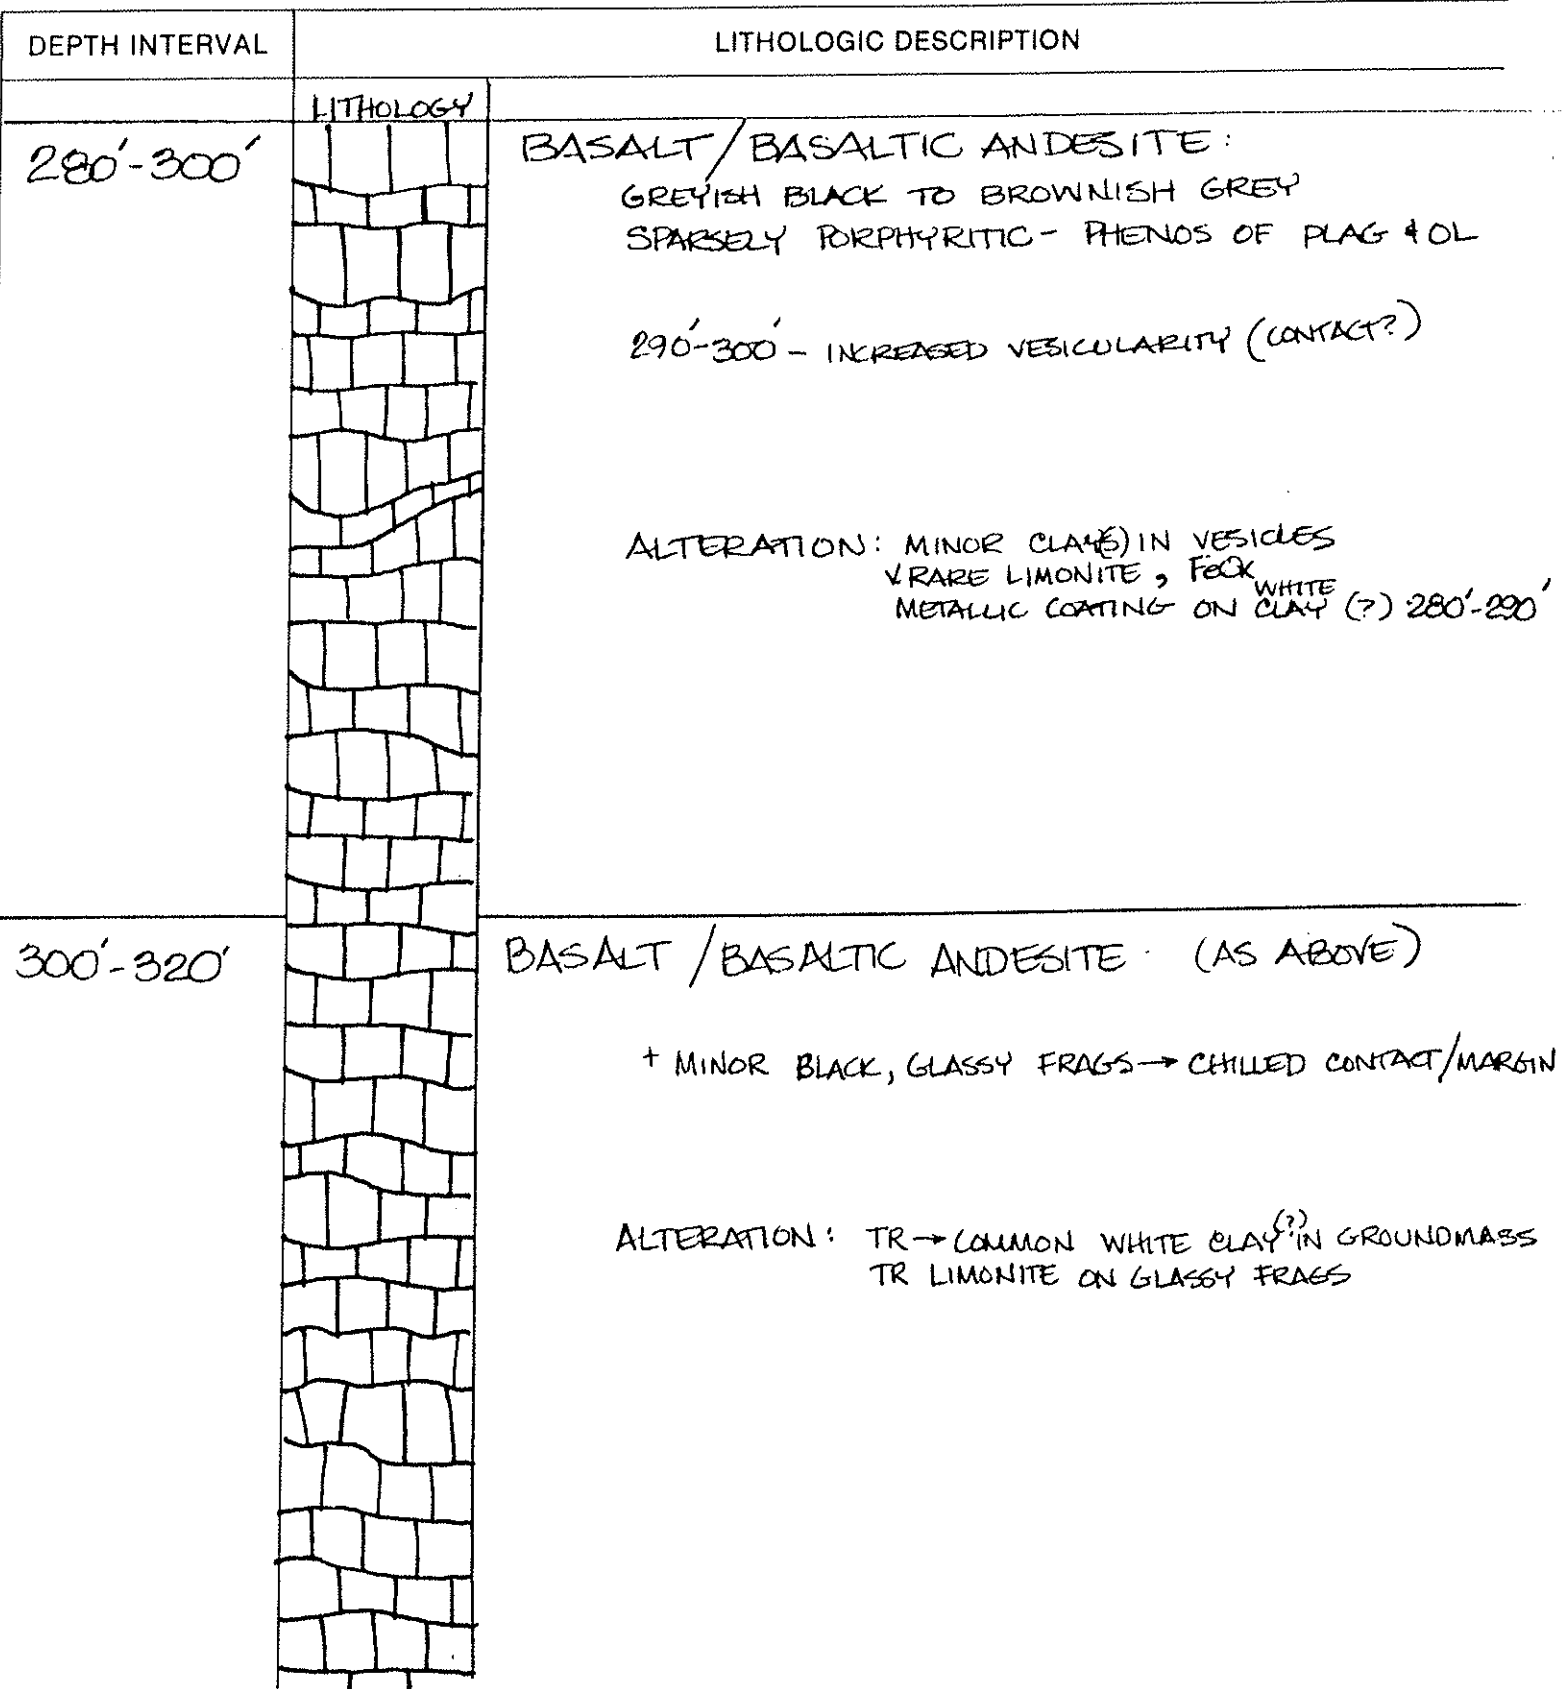 DEPTH INTERVAL
LITHOLOGIC DESCRIPTION
LITHOLOGY
280'-300'
BASALT/BASALTIC ANDESITE:
GREYISH BLACK TO BROWNISH GREY
SPARSELY PORPHYRITIC - PHENOS OF PLAG & OL
290'-300' - INCREASED VESICULARITY (CONTACT?)
ALTERATION: MINOR CLAY(S) IN VESICLES
V RARE LIMONITE, FeOx
WHITE
METALLIC COATING ON CLAY (?) 280'-290'
300'-320'
BASALT/BASALTIC ANDESITE (AS ABOVE)
+ MINOR BLACK, GLASSY FRAGS → CHILLED CONTACT/MARGIN
ALTERATION: TR → COMMON WHITE CLAY(?) IN GROUNDMASS
TR LIMONITE ON GLASSY FRAGS